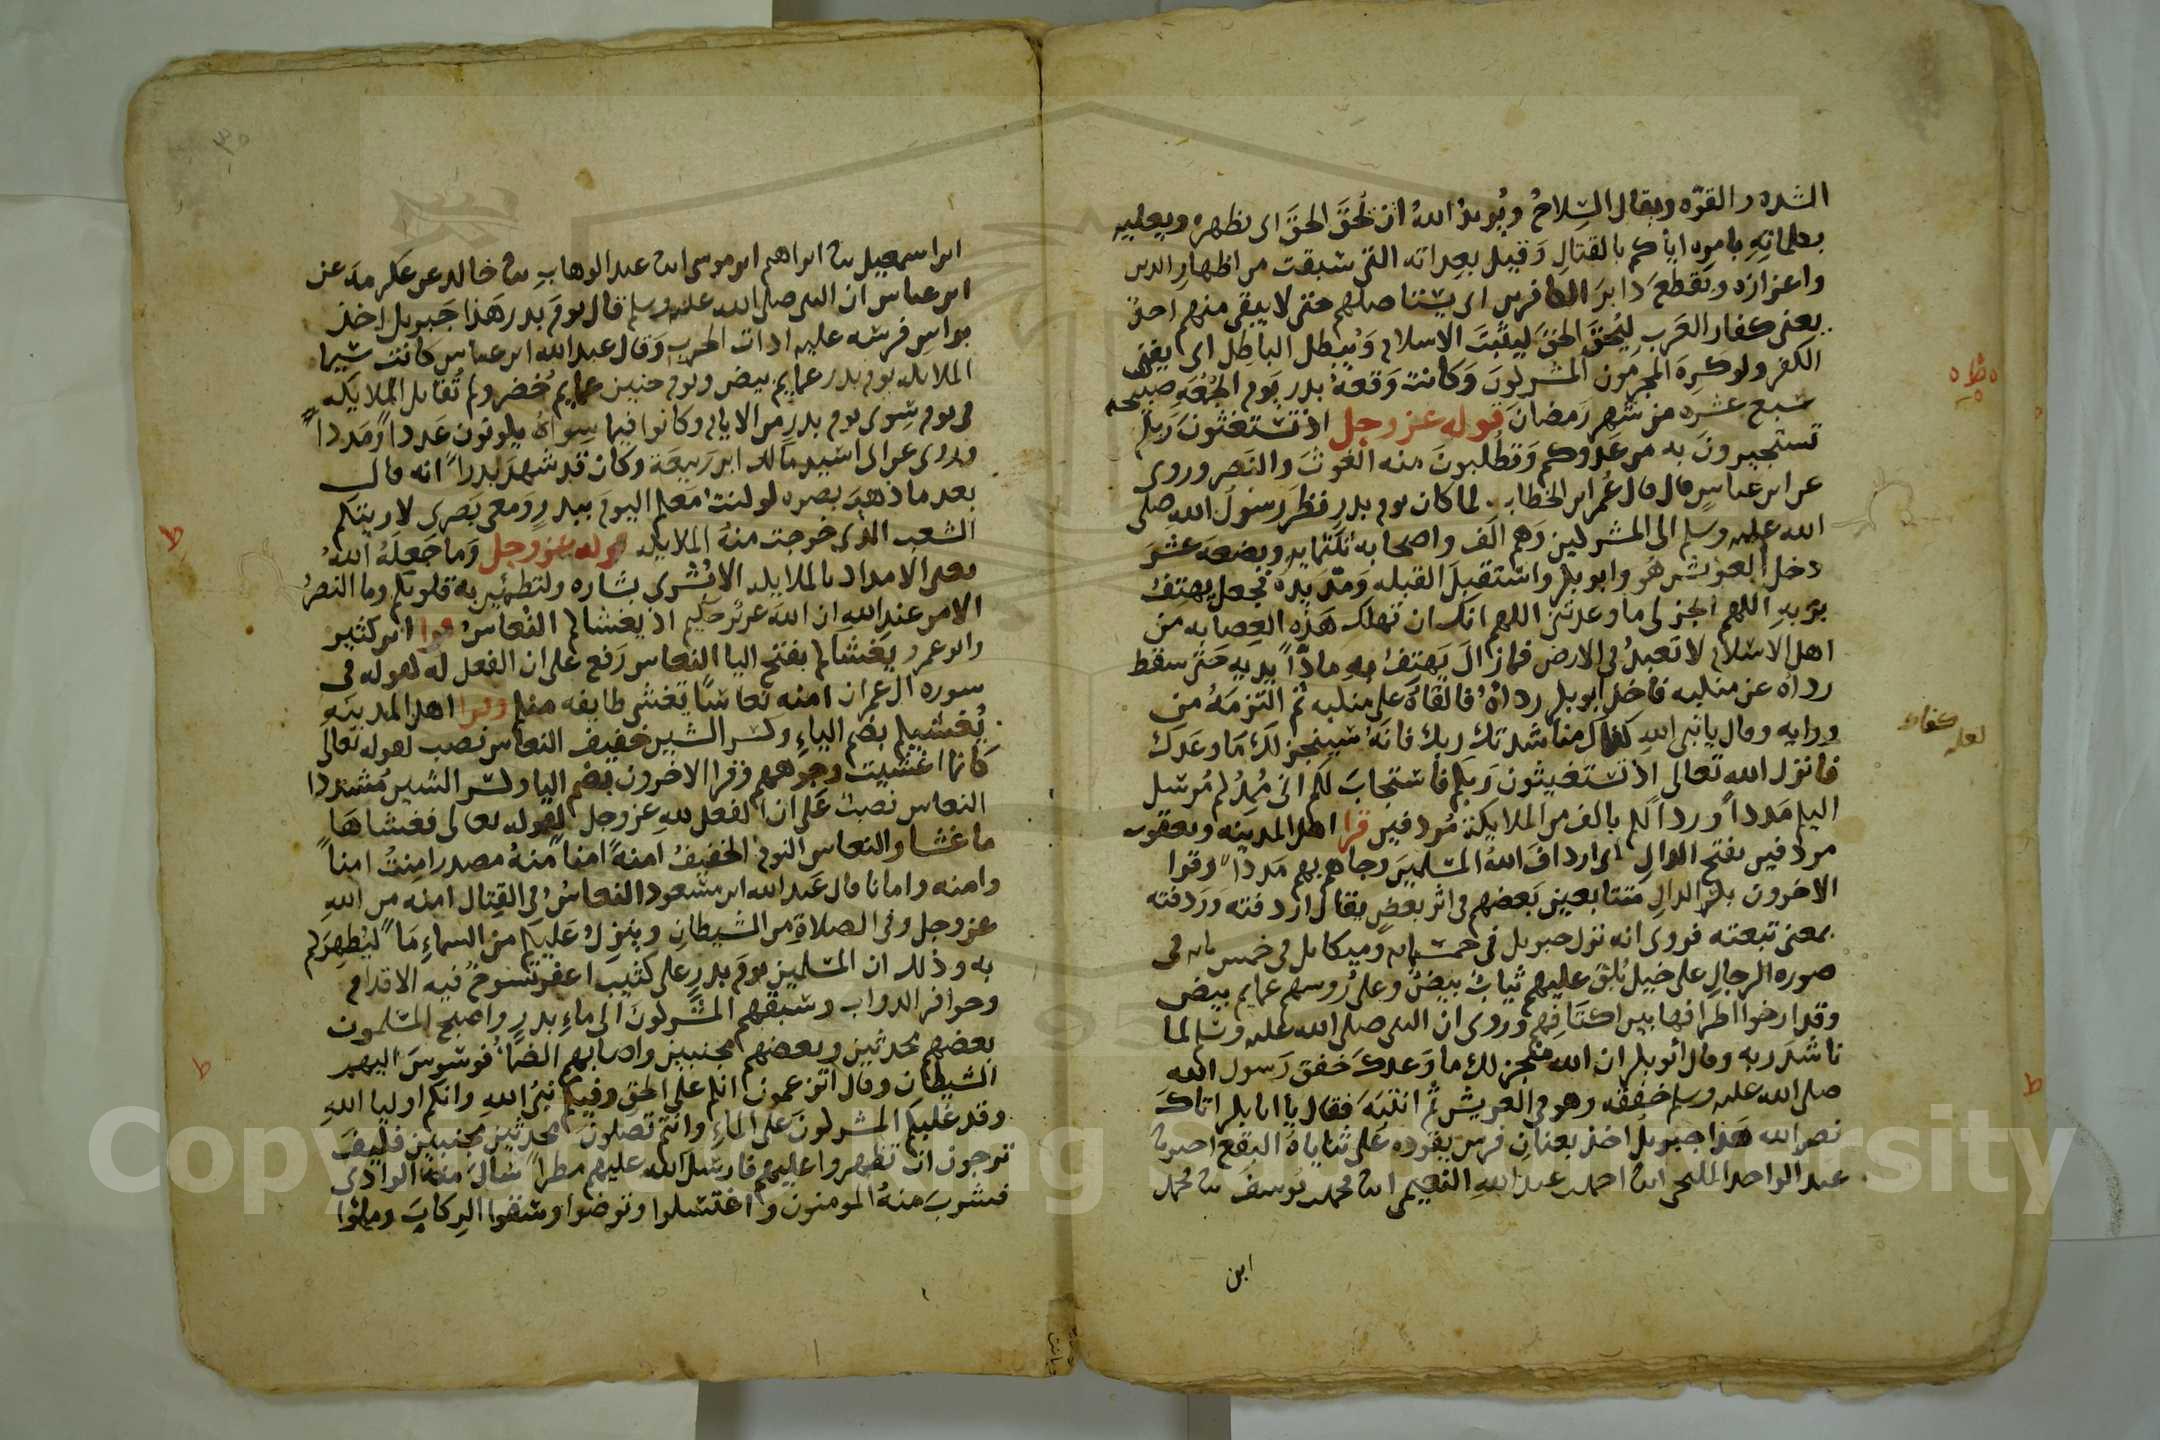 الشده والقوّه ويقال السِلاحُ ويُريدُ اللهُ ان يُحقَّ الحقَّ اى يظهره ويعليه
بكلماتِهِ بامره اياكم بالقتالِ وَقيل بعِداته التى سَبقت من اظهارِ الدين
واعزازه ويَقطعَ دابرَ الكافرين اى يستاصلهم حتى لا يبقى منهم احدٌ
يعنى كفار العَرب ليُحقَّ الحقَّ ليثبتَ الاسلام وَيُبطل الباطِل اى يفنى
الكفر ولو كرِهَ المجرمون المشركونَ وَكانت وَقعةُ بدر يَوم الجُمُعَهِ صبيحه
سَبع عَشره من شهر رَمضانَ قوله عز وجل اذ تستغثونَ ربكم
تستجيرونَ به من عَدوكم وَتطلبونَ منه الغوثَ والنَصر وروى
عن ابن عباسٍ قال قال عُمر ابن الخطاب لما كان يوم بدرٍ نظرَ رسُولَ الله صلى
الله عليه وسلم الى المشركين وَهم الَف واصحابه ثلثمايه وبضعه عَشَر
دخل العريش هو وابو بكر واستقبلَ القبله وَمدّ يَدَهُ فجعل يهتِفُ
بربهِ اللهم انجز لى ما وعدتنى اللهم انك ان تهلك هَذه العِصابه من
اهل الاسْلام لا تعبدُ فى الارض فماز الَ يَهتِفُ بهِ مادّاً يديه حَتى سقط
رداه عن منكبه فاخذ ابو بكر رداهُ فالقاهُ على منكبه ثم التزمَهُ من
وِرايه وقال يا نبى اللهِ كفاك مناشدتك ربك فانهُ سَينجز لكَ مَا وعَدَك
فانزل الله تعالى اذ تستغيثون رَبكم فاستجابَ لكم انى مُمِدُكم مُرسل
اليكم مَدداً وردآ لكم بالف من الملايكة مُردفين قرا اهل المدينه ويعقوب
مردفين بفتح الدال اى اردافَ اللهُ المسْلمينَ وجاهم بهم مَدداً وقرا
الاخرون بكسر الدالِ متتابعين بَعضهم فى اثر بعضٍ يقال اردفته وَرَدفته
بمعنى تبعته فروى انه نزل جبريل فى خمسمايه وميكايل فى خمس مايه فى
صوره الرجالِ على خيلٍ بُلقٍ عليهم ثيابٌ بيضٌ وعلى رُوسهم عمايم بيض
وقد ارخوا اطرافها بين اكتَافِهم وروى ان النبى صلى الله عليه وسَلم لما
ناشدَ ربه وقال أبو بكر ان الله منجز لك ما وَعدكَ خفق رَسول الله
صلى الله عليه وسلم خفقه وهو فى العريش ثم انتبهَ فقال يا ابا بكر اتاكَ
نصر الله هَذا جبريل اخذ بعنانِ فرسٍ يقوده عَلى ثناياهُ النقع اخبرنا
عبد الواحد المليحى انا احمد بن عبد اللهِ النعيمى انا محمد بن يُوسفَ نا مُحمد
ابن
لعله كفاك
٣٥
ابن اسمعيل نا ابراهيم ابن موسى انا عبد الوهابِ نا خالد عن عكرمه عن
ابن عباس ان النبى صلى الله عليه وسلم قال يومَ بدر هَذا جَبريل اخذ
براس فرسه عليه ادات الحرب وَقال عبد الله ابن عباس كانت سيما
الملايكه يوم بدر عمايم بيض ويوم حنين عمايمُ خُضر ولم تُقاتل الملايكه
فى يوم سِوى يوم بدرٍ من الايام وكانوا فيما سِواهُ يكونون عَدداً ومَدداً
وروى عن ابى اسيد مَالك ابن رَبيعَة وكانَ قد شهدَ بَدراً انه قال
بعد ما ذهَبَ بصره لو كنت معكم اليوم ببدرٍ وَمعى بَصرى لاريتكم
الشعب الذى خرجت منهُ الملايكه قوله عز وجل وَما جَعلَهُ اللهُ
يعنى الامداد بالملايكه الا بُشرى بشاره ولتطمئن به قلوبكم وما النصرُ
الا من عندِ اللهِ ان اللهَ عزيز حكيم اذ يغشاكم النُعاسُ قرا ابن كثير
وابو عمرو يغشاكم بفتح اليا النعاس رَفع على ان الفعل له لقوله فى
سوره ال عمران امنه نعَاسًا يَغشى طايفه منكم وقرا اهل المدينه
يُغشيكم بضم الياءِ وكسر الشين خفيف النعاس نصب لقوله تعالى
كانما اغشيت وجوههم وقرا الاخرون بضم اليا وكسر الشين مُشددا
النعاس نصبٌ عَلى ان الفعل للهِ عز وجل لقوله تعالى فغشاهَا
ما غشا والنعاس النوم الخفيفُ امنهً امناً منهُ مصدر امِنتُ امناً
وامنه وامانا قال عَبد الله ابن مسْعود النعاسُ فى القِتال امنه من اللهِ
عز وجل وفى الصلاةِ من الشيطانِ وينزلُ عَليكم من السماءِ مَاً ليُطهِرَكم
به وذلك ان المسْلمين يومَ بدرٍ على كثيبِ اعفر تسوخُ فيه الاقدام
وحوافر الدواب وسَبقهم المشَركونَ الى ماءِ بدرٍ واصبح المسْلمون
بعضهم محدثين وبعضهم مجنبين واصابهم الضماُ فوسوسَ اليهم
الشيطان وقال اتزعمون انكم على الحق وفيكم نبىُ اللهِ وانكم اوليا اللهِ
وقد غلبكم المشركونَ عَلى الماءِ وانتم تصلون محدثين مجنبين فكيفَ
ترجون ان تظهروا عليهم فارسَل الله عليهم مطراً سَالَ منهُ الوادى
فشربَ منهُ المومنون واغتسلوا وتوضوا وسَقوا الرِكابَ وملئوا
Copy King University